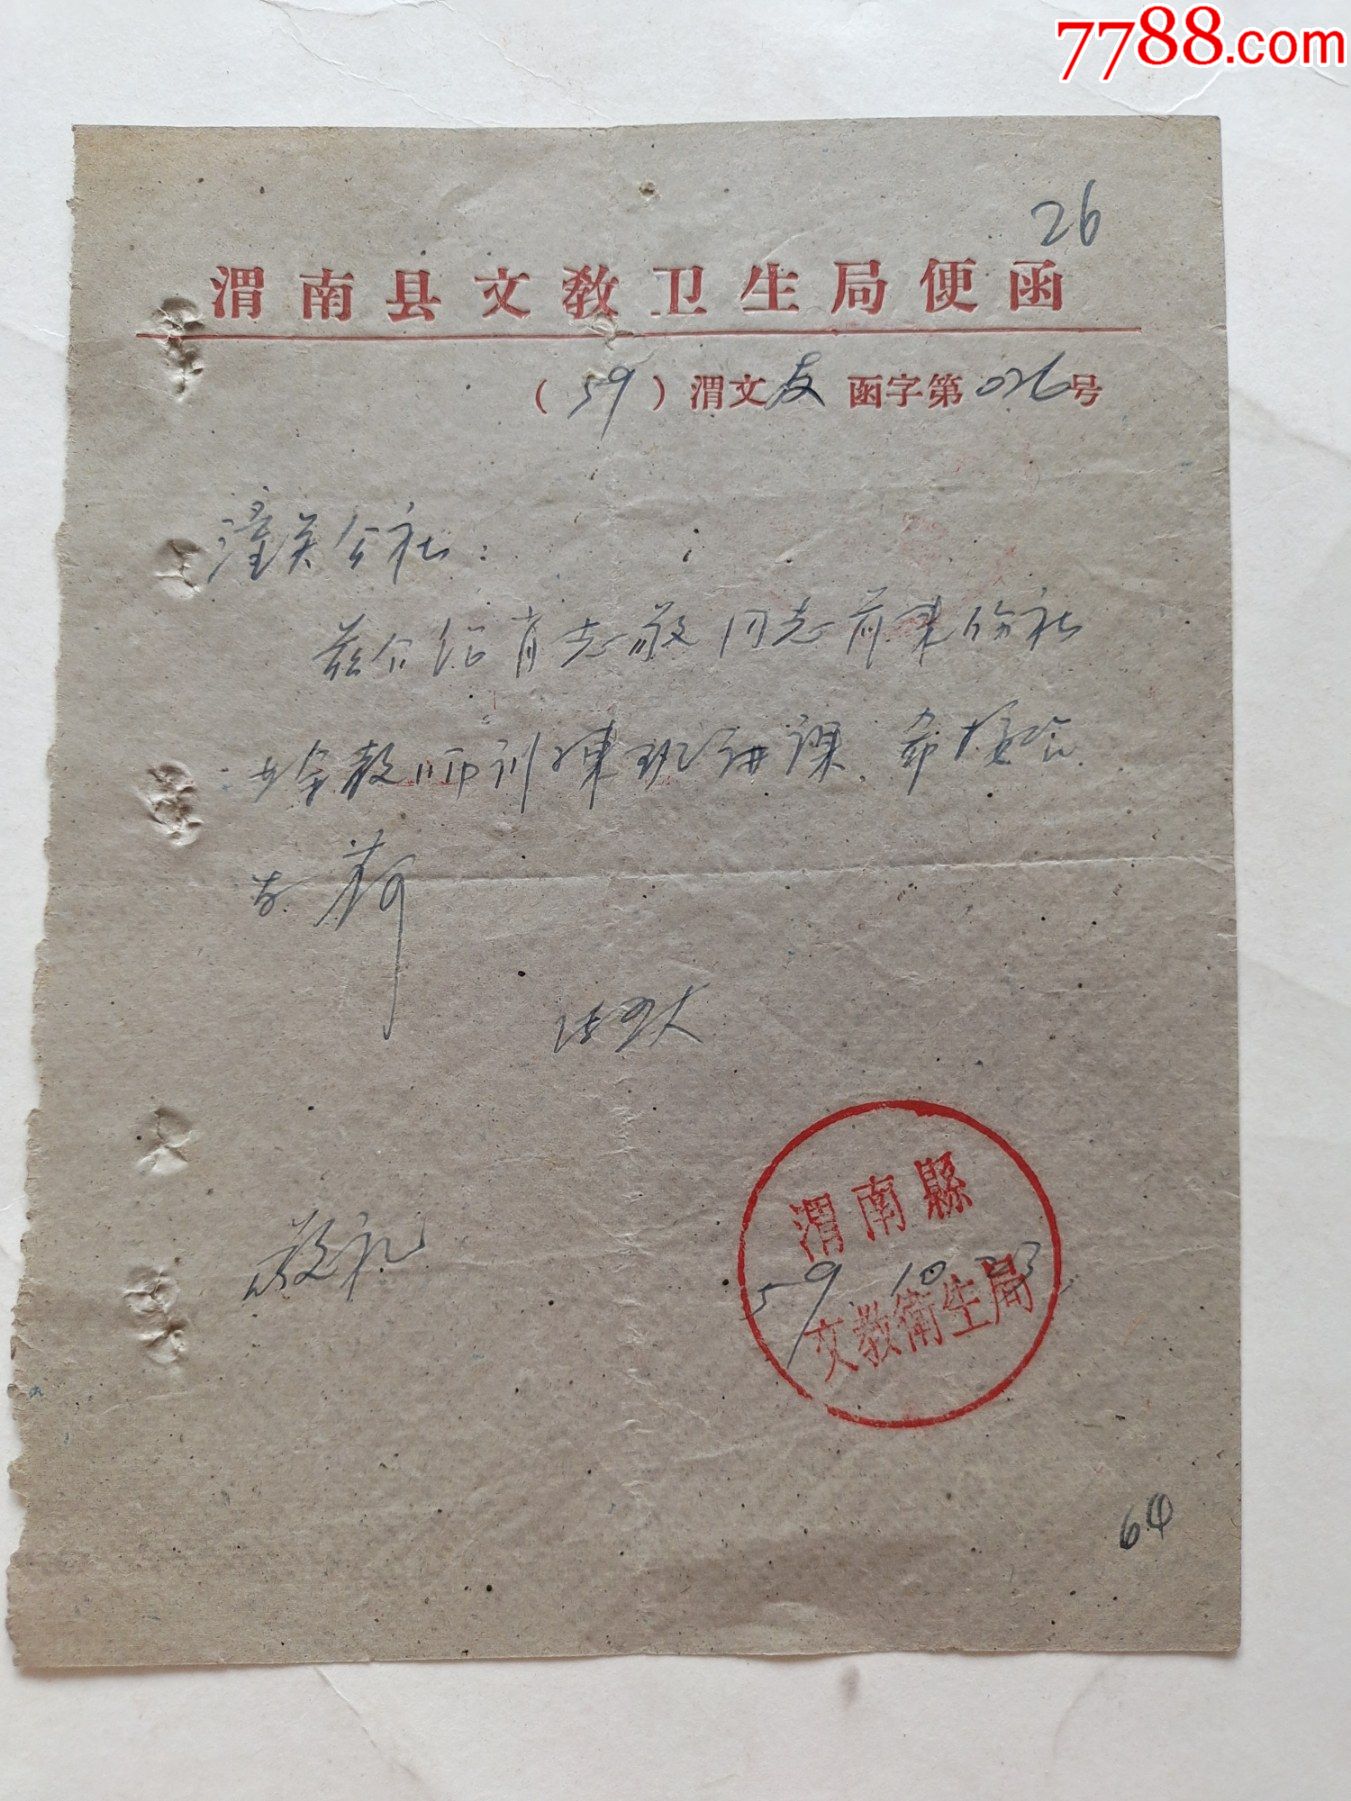 7788.com
26
渭南县文教卫生局便函
(59)渭文友函字第026号
潼关公社:
兹介绍肖志敬同志前来你社
业余教师训练班讲课、希接洽
为荷
此致
敬礼
渭南縣
59 10 23
文教衛生局
64